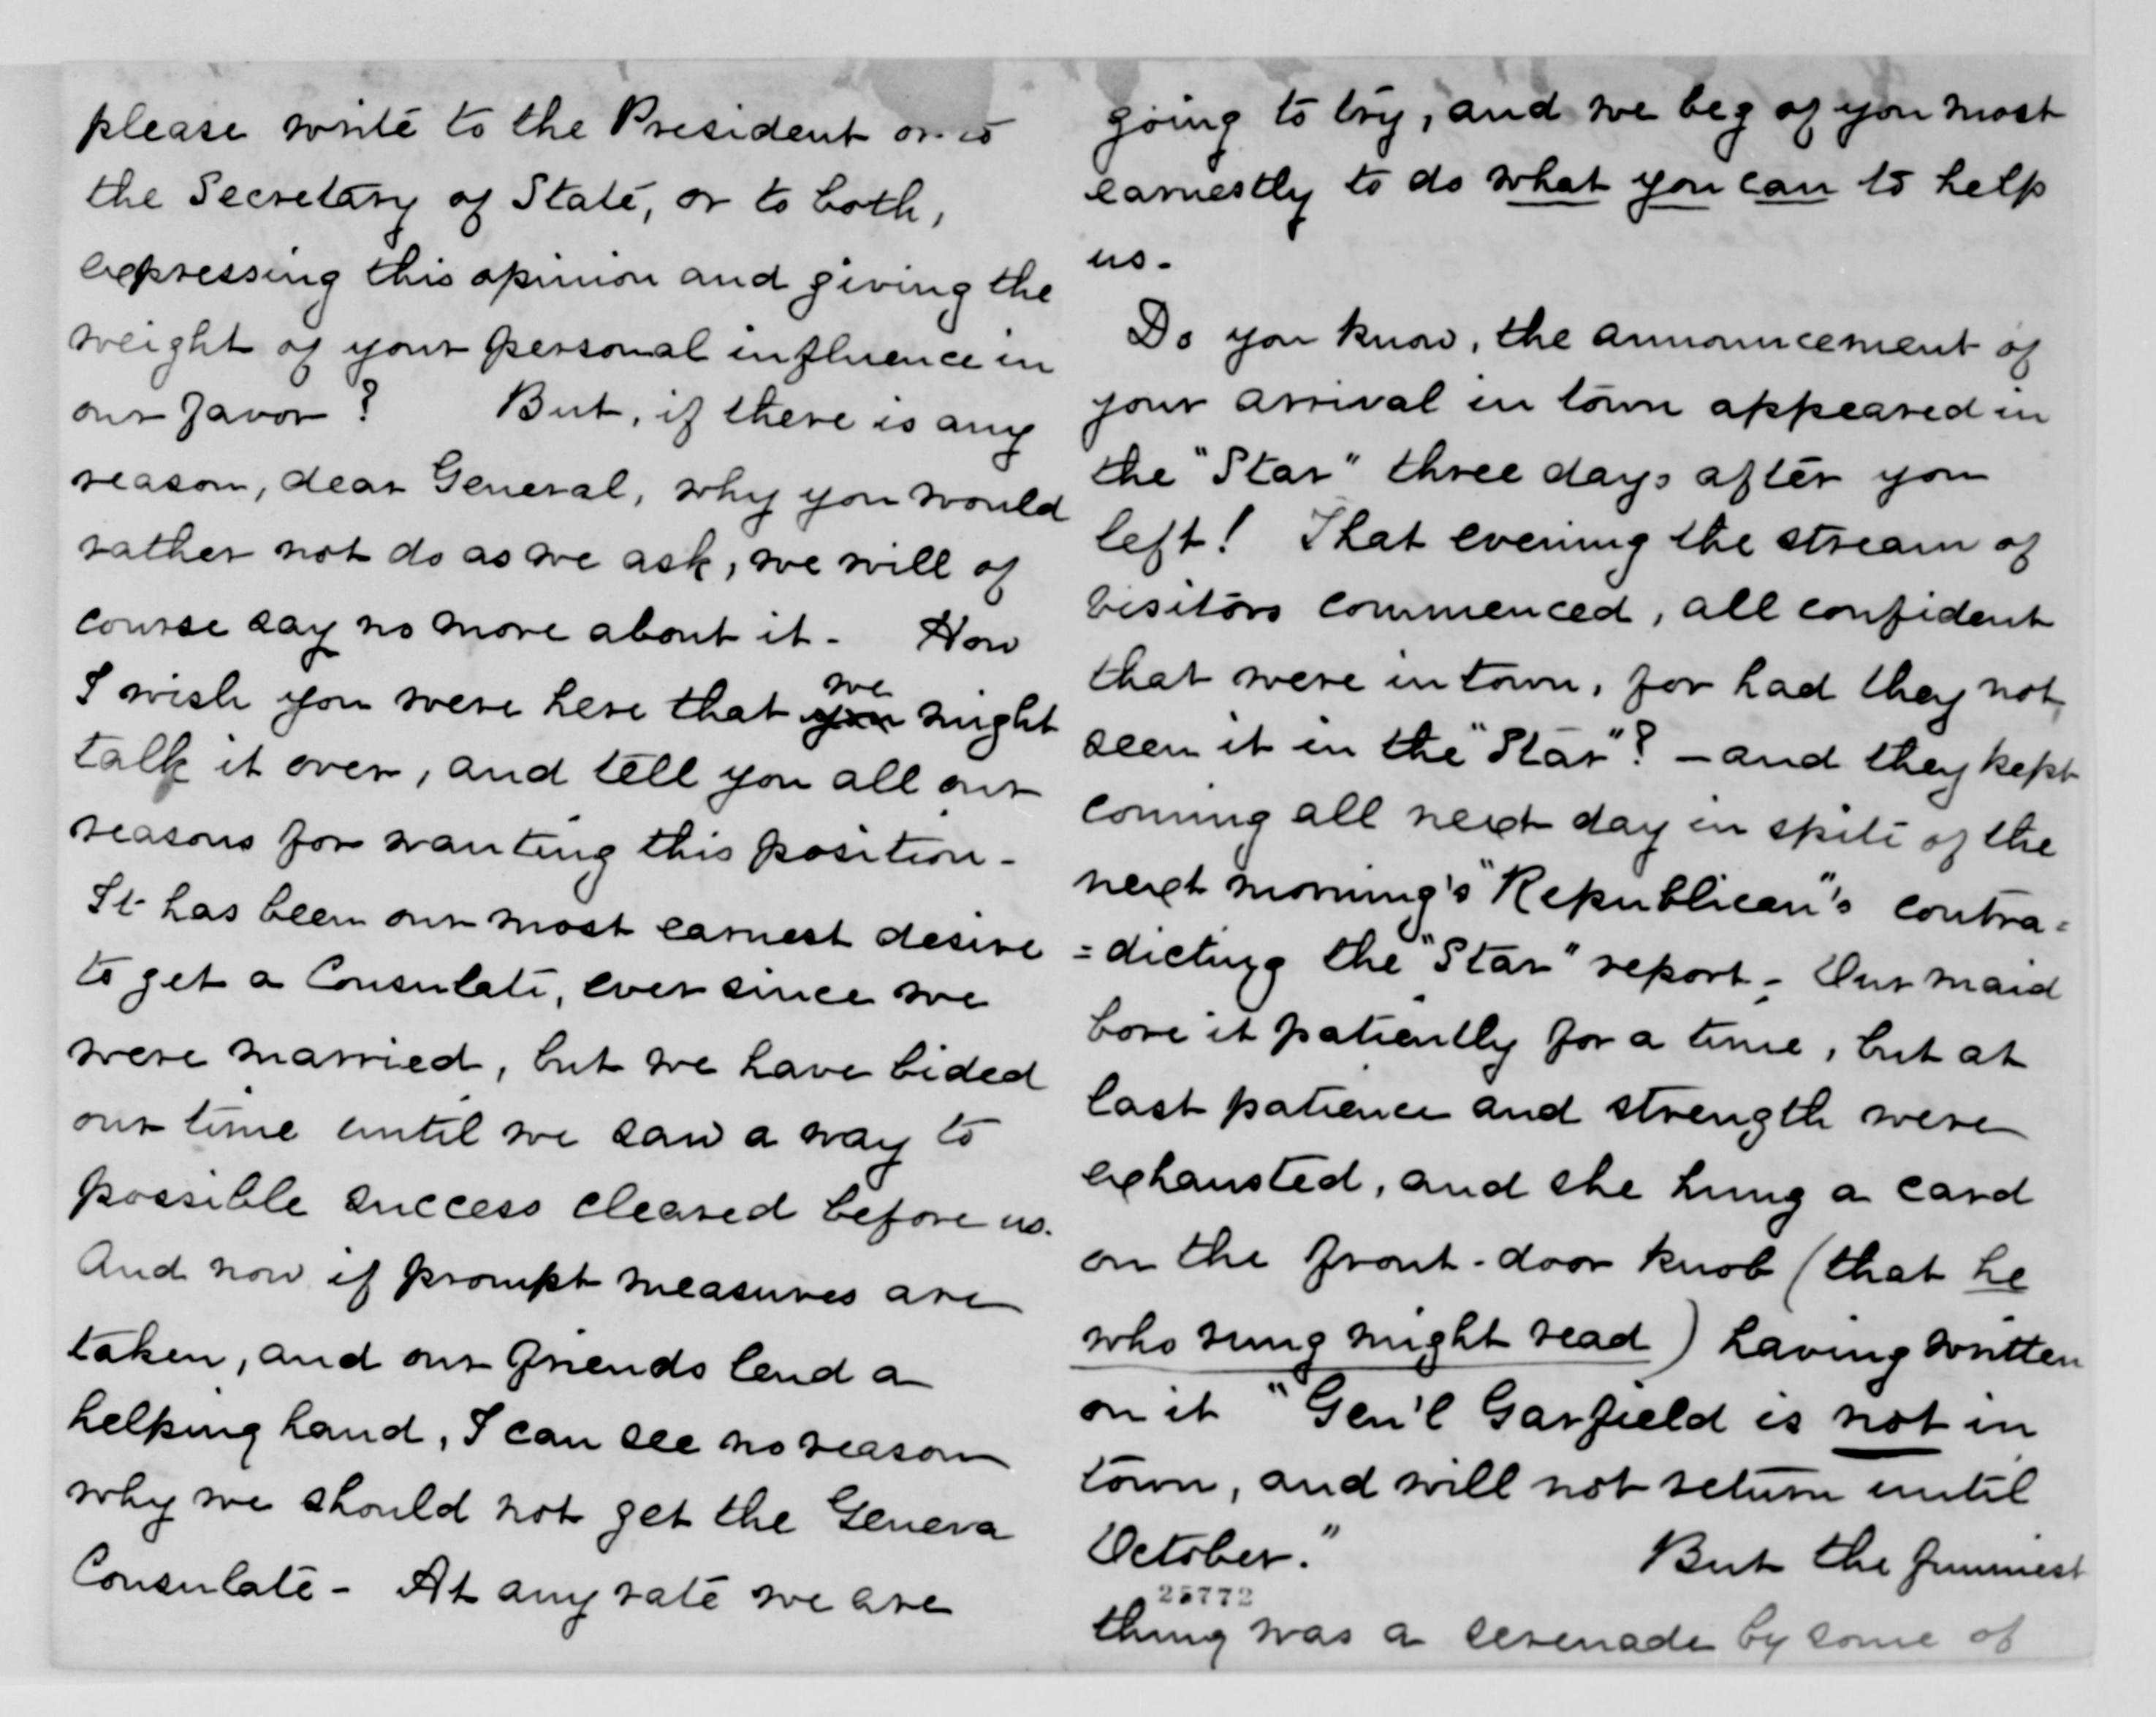 please write to the President or to
the Secretary of State, or to both,
expressing this opinion and giving the
weight of your personal influence in
our favor? But, if there is any
reason, dear General, why you would
rather not do as we ask, we will of
course say no more about it - How
I wish you were here that you we might
talk it over, and tell you all our
reasons for wanting this position -
It has been our most earnest desire
to get a Consulate, ever since we
were married, but we have bided
our time until we saw a way to
possible success cleared before us.
And now if prompt measures are
taken, and our friends lend a
helping hand, I can see no reason
why we should not get the Geneva
Consulate - At any rate we are
going to try, and we beg of you most
earnestly to do what you can to help
us -
Do you know, the announcement of
your arrival in town appeared in
the "Star" three days after you
left! That evening the stream of
visitors commenced, all confident
that were in town, for had they not
seen it in the "Star"? - and they kept
coming all next day in spite of the
next morning's "Republican"'s contra=
=dicting the "Star" report - Our maid
bore it patiently for a time, but at
last patience and strength were
exhausted, and she hung a card
on the front-door knob (that he
who rung might read) having written
on it "Gen'l Garfield is not in
town, and will not return until
October." But the funniest
25772
thing was a serenade by some of